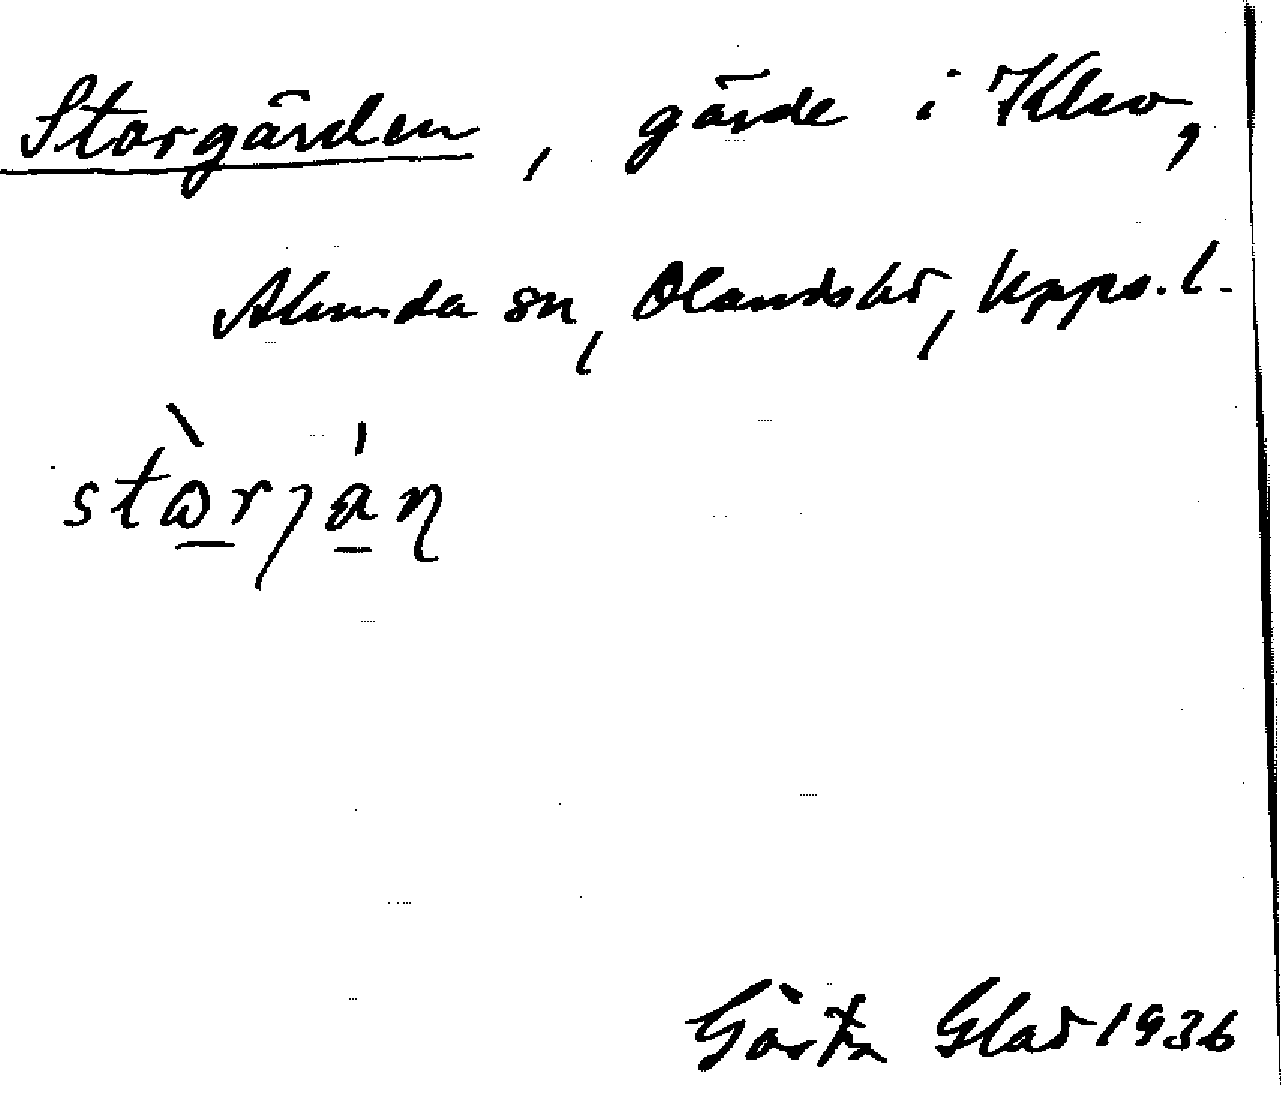 Storgärden, gärde i Klev,
Alunda sn, Olands hd, Upps. l.
Gösta Glad 1936